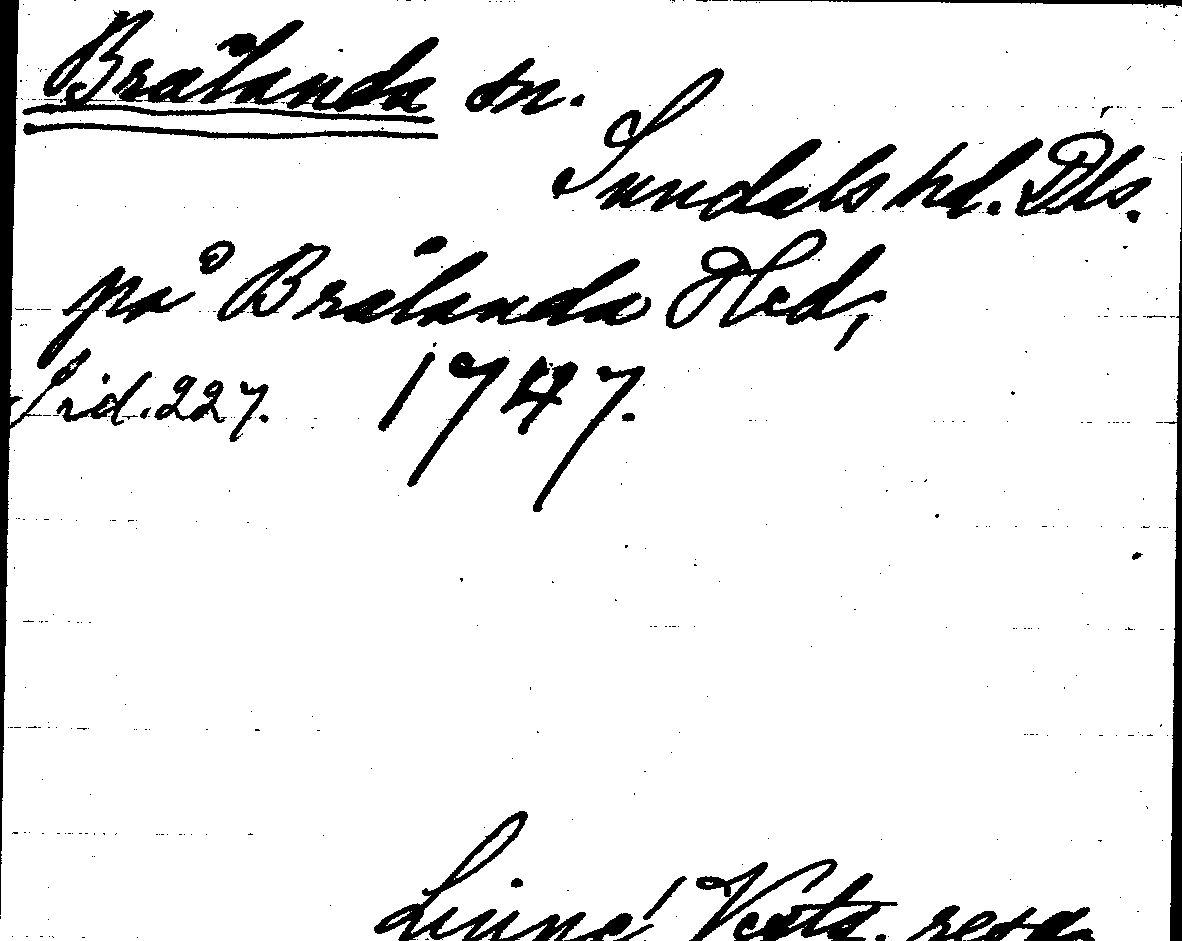 Brålanda sn.
Sundals hd. Dls.
på Brålanda Hed,
Sid. 227. 1747.
Linné Vestg. resa